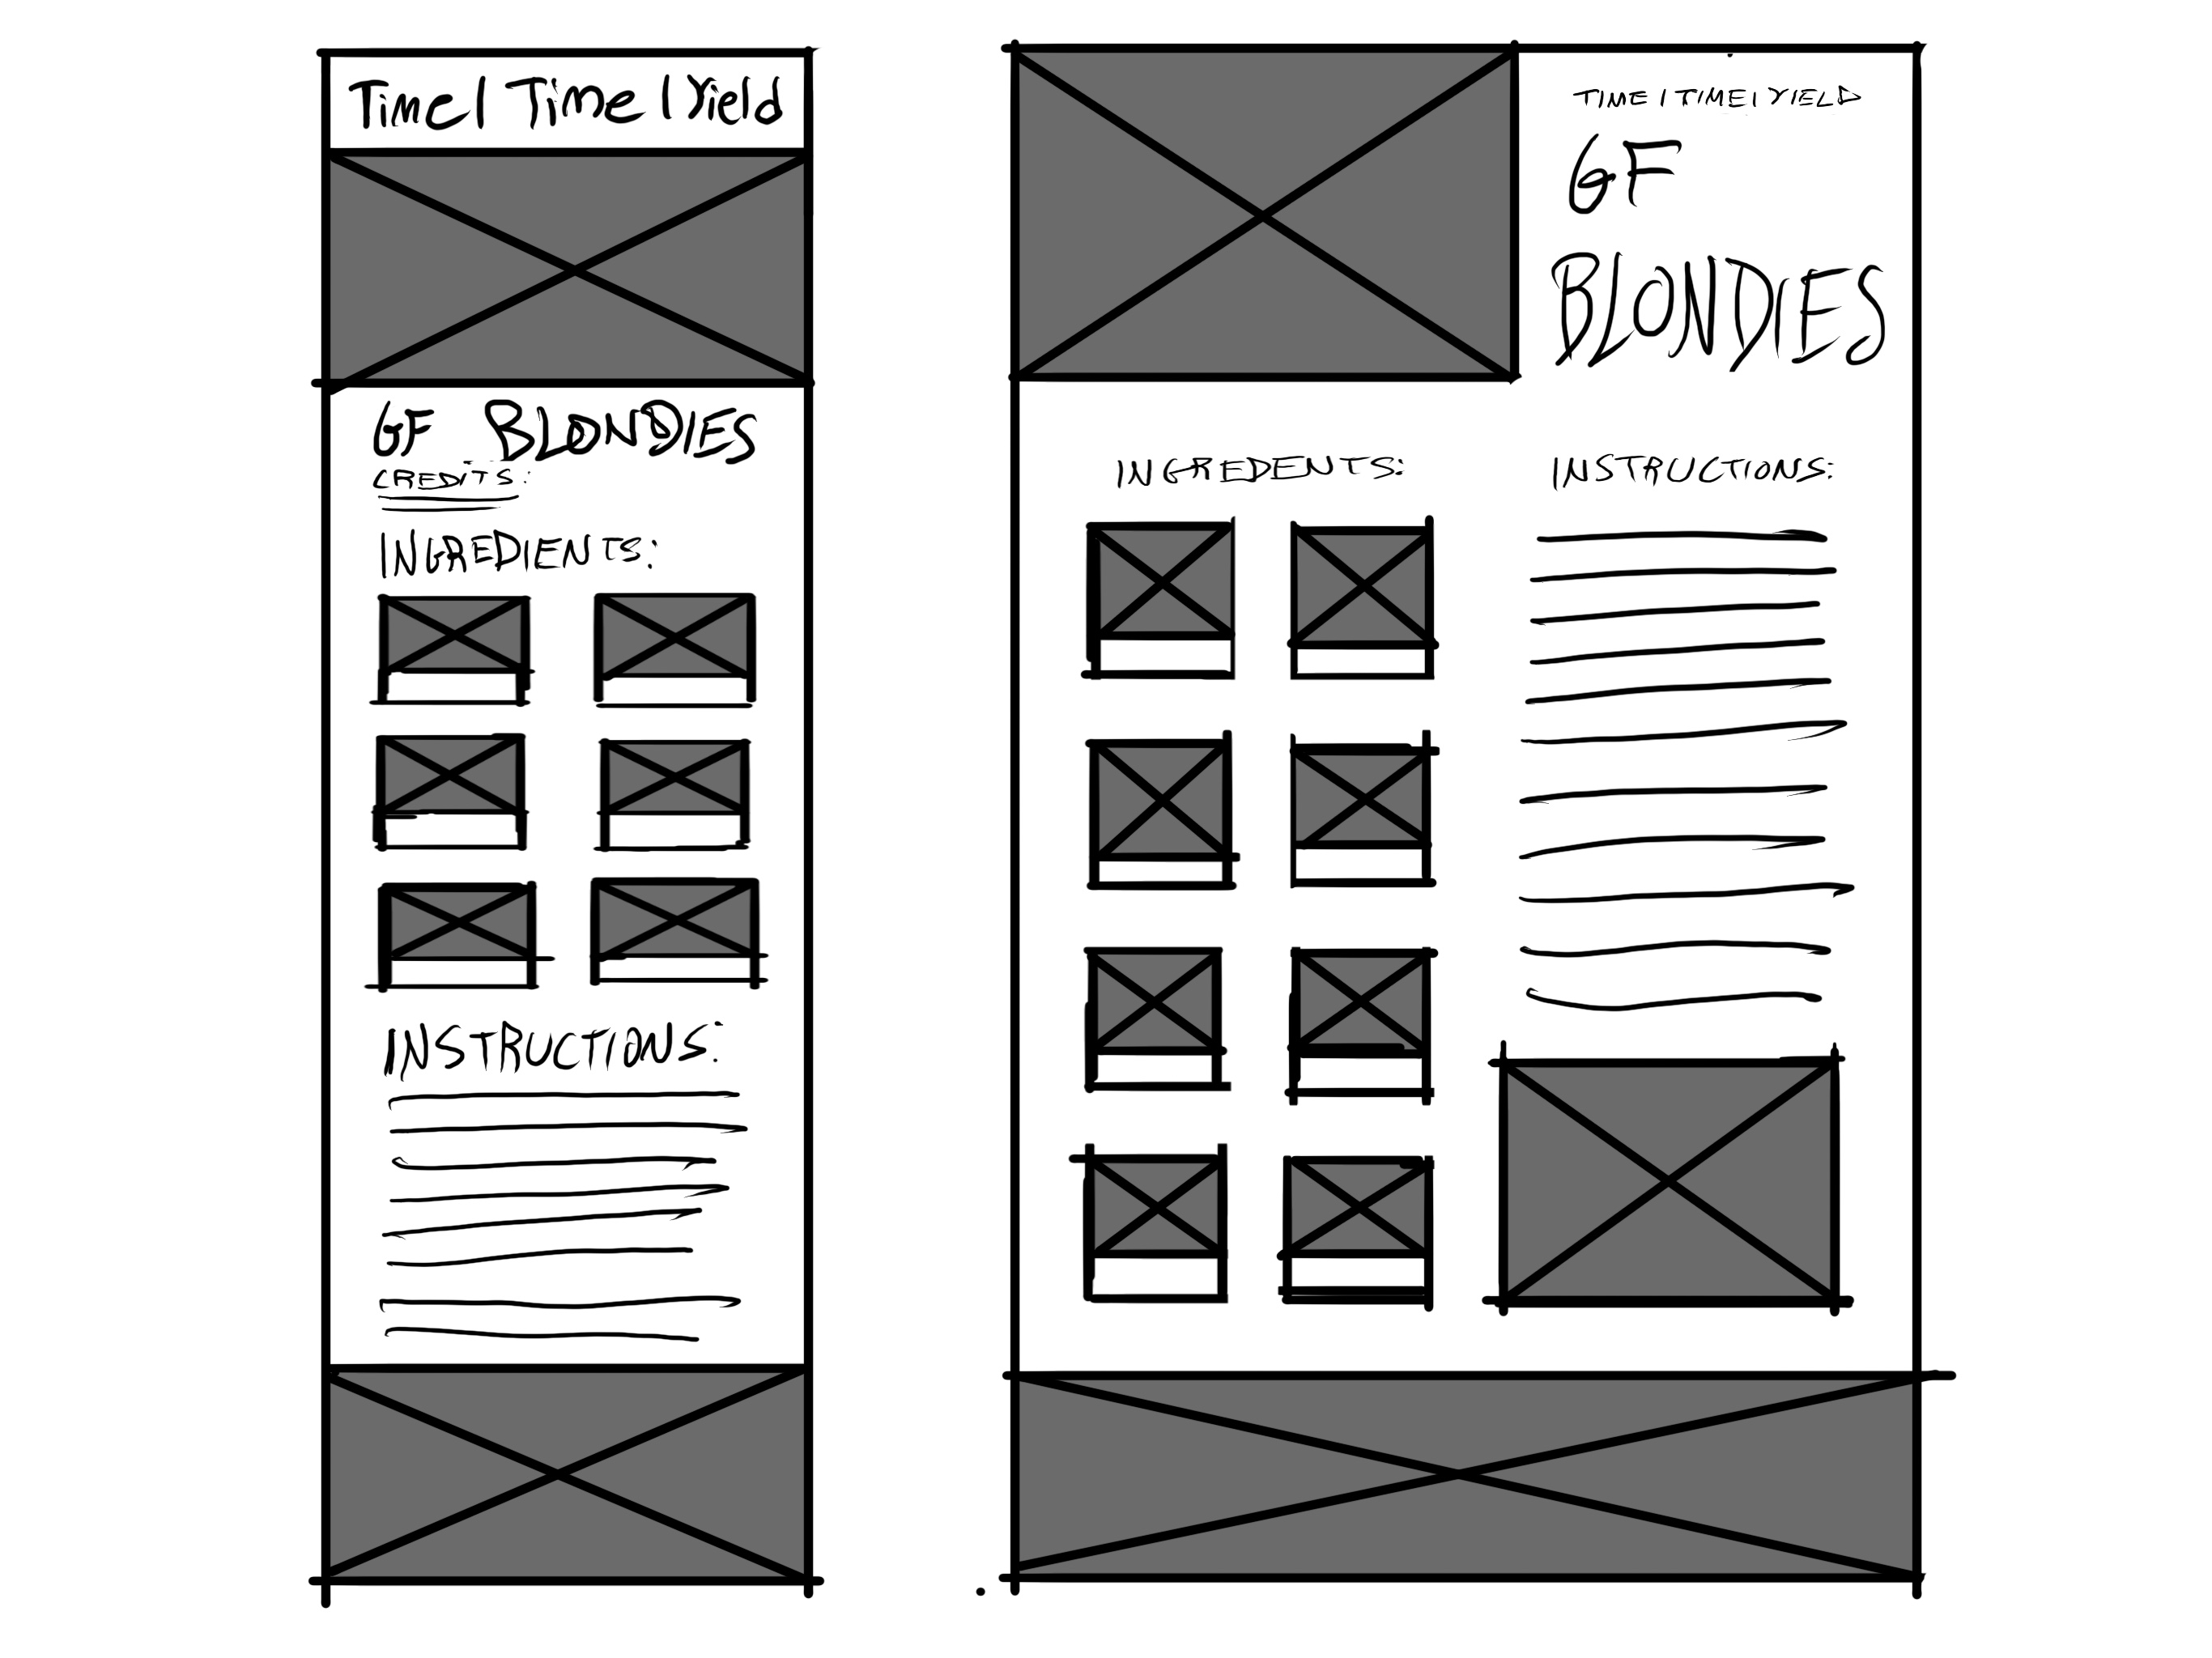 Time| Time | Yield
GF BLONDIES
CREDITS:
INGREDIENTS:
INSTRUCTIONS:
TIME | TIME | YIELD
GF
BLONDIES
INGREDENTS:
INSTRUCTIONS: